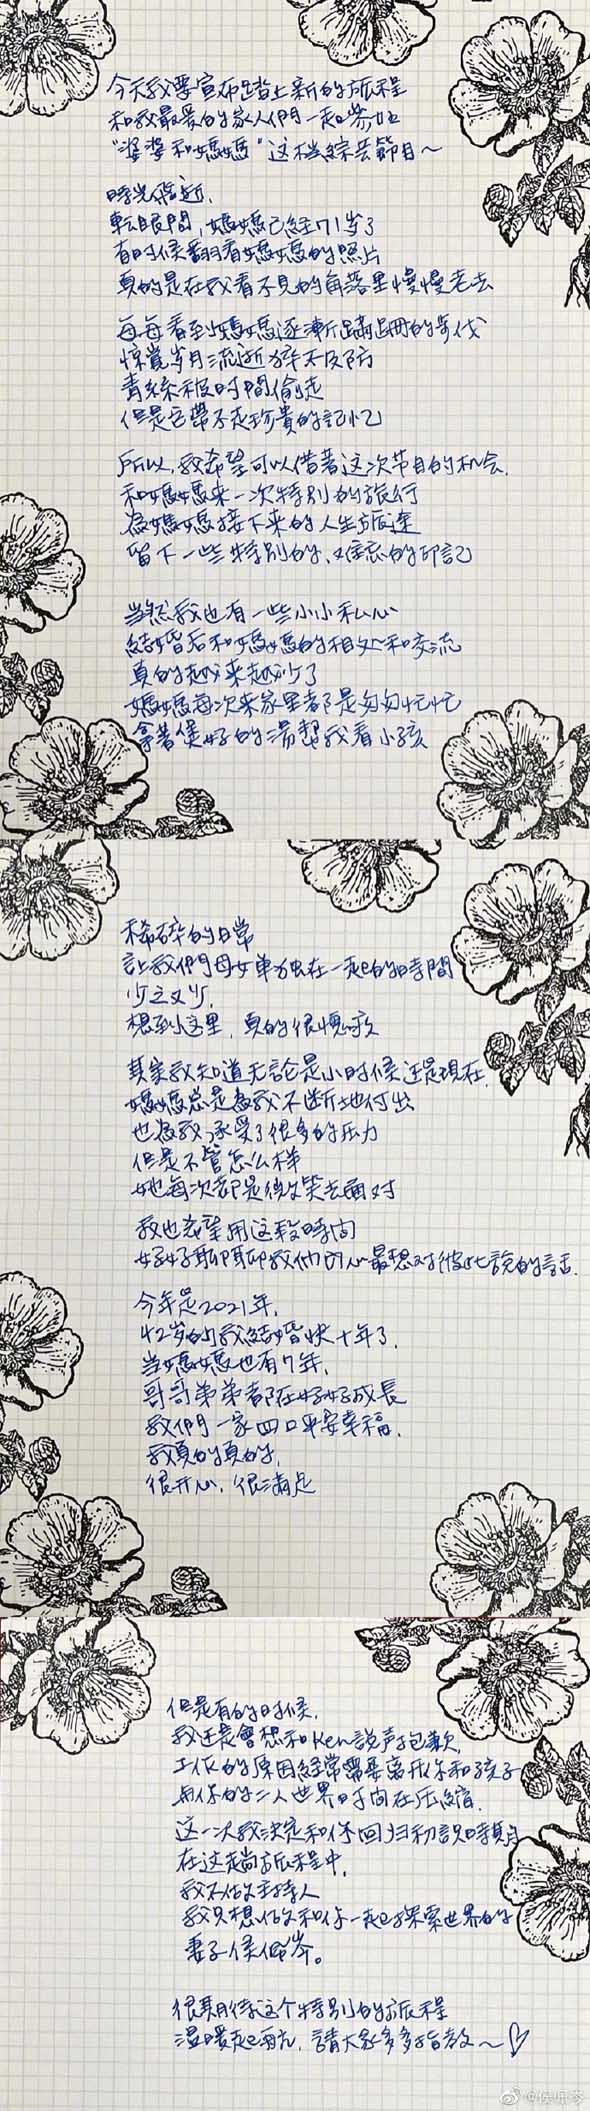 今天我要宣布踏上新的旅程
和我最爱的家人們一起參加
“婆婆和媽媽”这档綜芸節目～
時光偪近，
転眼間，媽媽已経71岁了
有时候翻看媽媽的照片
真的是在我看不見的角落里慢慢老去
每每看到媽媽逐漸蹣跚的步伐
惊覚岁月流逝猝不及防
青絲被时間偷走
但是它帶不走珍貴的記忆
所以，我希望可以借著这次节目的机会，
和媽媽来一次特别的旅行
為媽媽接下来的人生旅途
留下一些特别的、难忘的印記
当然我也有一些小小私心
結婚后和媽媽的相处和交流
真的越来越少了
媽媽每次来家里都是匆匆忙忙
拿著煲好的湯幫我看小孩
稀碎的日常
讓我們母女单独在一起的時間
少之又少，
想到这里，真的很慚愧
其実我知道无論是小时候还是現在，
媽媽总是為我不断地付出
也為我承受了很多的压力
但是不管怎么样
她每次都是微笑去面对
我也希望用这段時间
好好聊聊我们内心最想对彼此説的話.
今年是2021年，
42岁的我結婚快十年了，
当媽媽也有7年，
哥哥弟弟都在好好成長
我們一家四口平安幸福，
我真的真的，
很开心，很滿足
但是有的时候，
我还是會想和Ken説声抱歉，
工作的原因経常需要离开你和孩子
与你的二人世界时间在压縮，
这一次我决定和你回归初識時期
在这趟旅程中，
我不做主持人
我只想做和你一起探索世界的
妻子侯佩岑。
很期待这个特别的旅程
温暖起航，請大家多多指教～♡
@侯佩岑